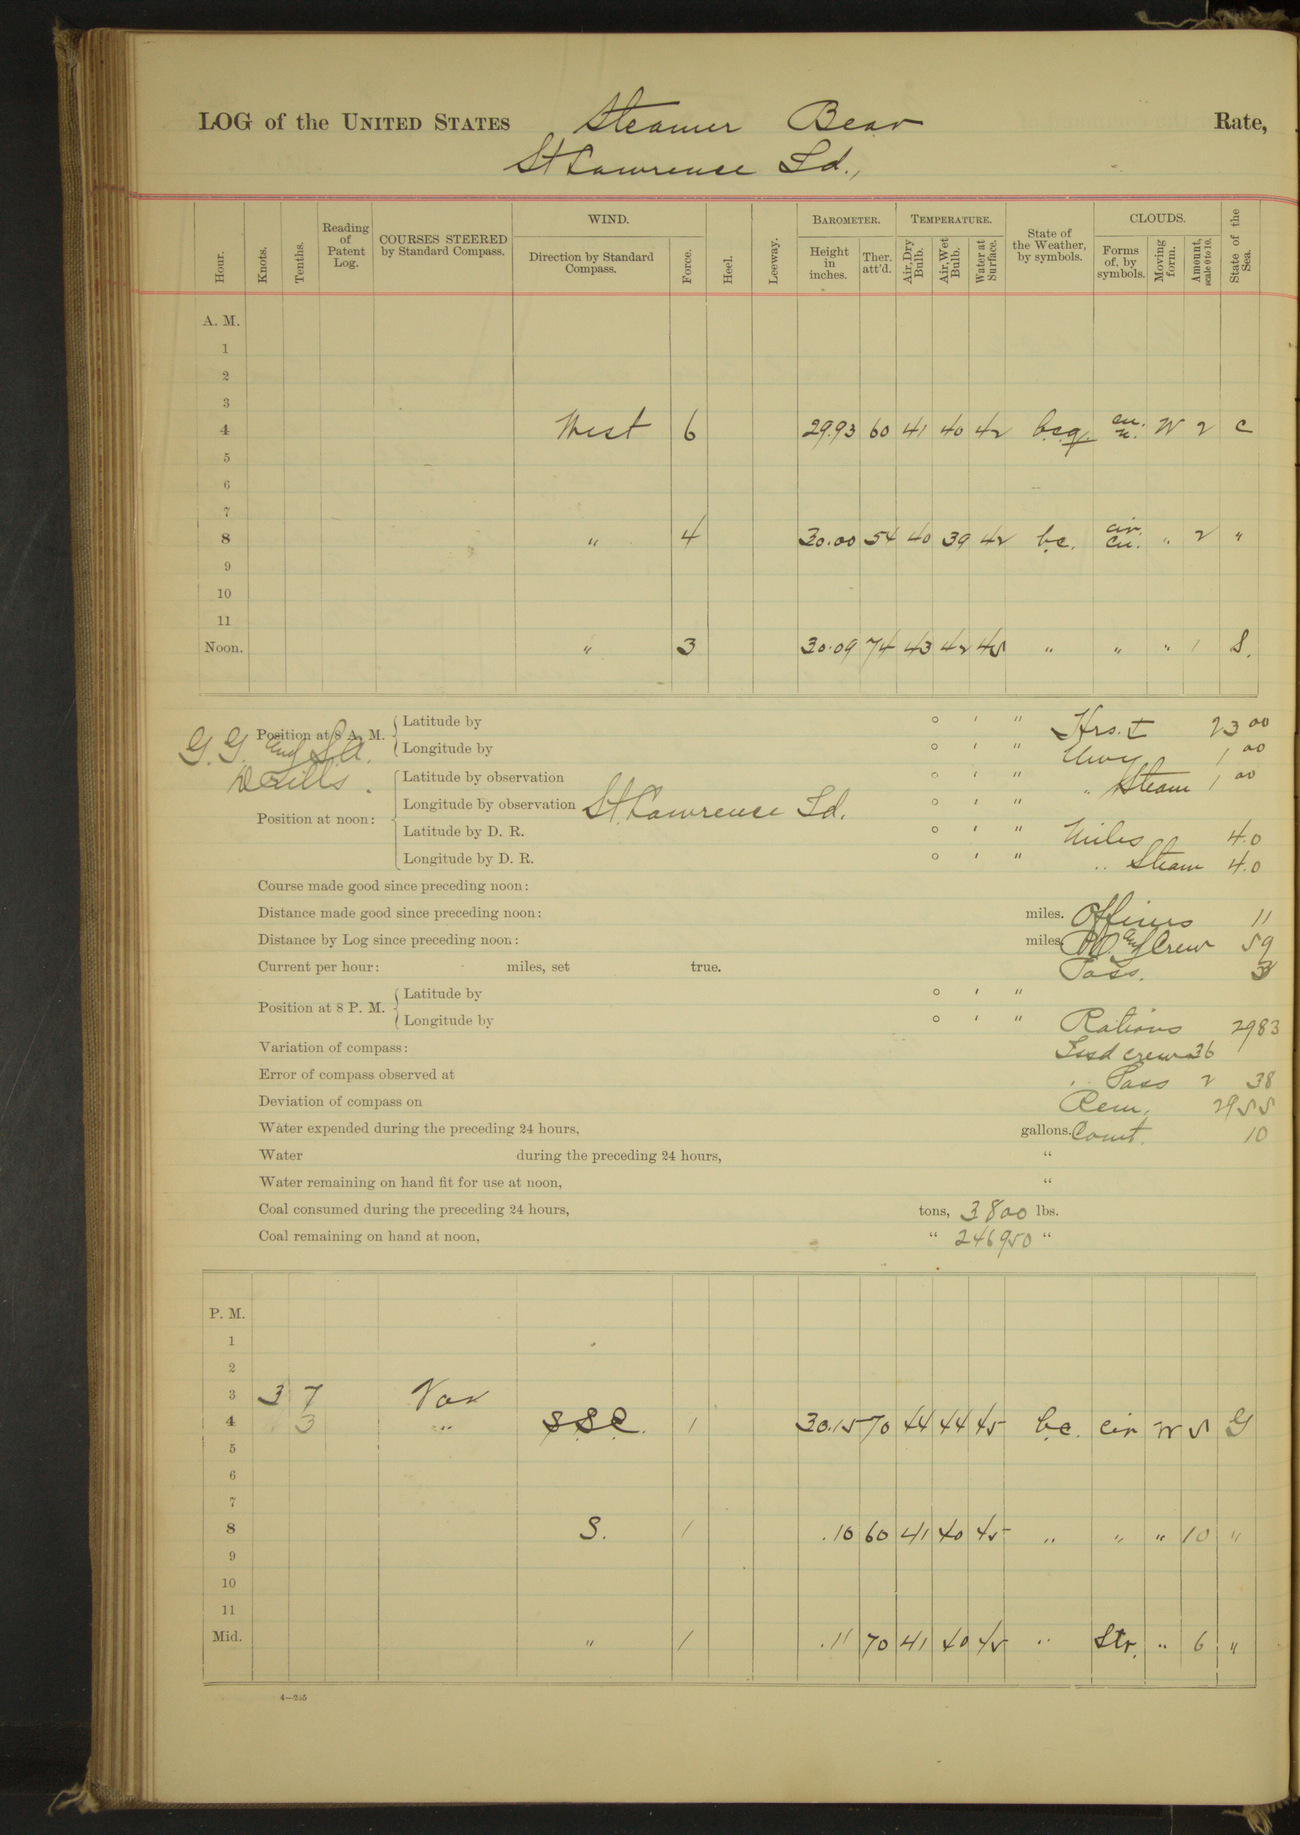 LOG of the UNITED STATES Steamer Bear Rate,
St Lawrence Id.,
Hour. Knots. Tenths. Reading of Patent Log. COURSES STEERED by Standard Compass. WIND. Direction by Standard Compass. Force. Heel. Leeway. BAROMETER. Height in inches. Ther. att'd. TEMPERATURE. Air, Dry Bulb. Air, Wet Bulb. Water at Surface. State of the Weather, by symbols. CLOUDS. Forms of, by symbols. Moving form. Amount, scale 0 to 10. State of the Sea.
A. M.
1
2
3
4 West 6 29.93 60 41 40 42 b.c.q. cu. n. W 2 C
5
6
7
8 " 4 30.00 54 40 39 42 b.c. cir. cu. " 2 "
9
10
11
Noon. " 3 30.09 74 43 42 45 " " " 1 S.
Position at 8 A. M. { Latitude by ° ' " Hrs. I 23 00
G. G. and S. A. Longitude by ° ' " Uwy 1 00
Drills. Latitude by observation ° ' " " Steam 1 00
Longitude by observation St. Lawrence Id. ° ' "
Position at noon:
Latitude by D. R. ° ' " Miles 4.0
Longitude by D. R. ° ' " .. Steam 4.0
Course made good since preceding noon:
Distance made good since preceding noon: miles. Officers 11
Distance by Log since preceding noon: miles. and Crew 59
Current per hour: miles, set true. Pass. 3
Position at 8 P. M. { Latitude by ° ' "
Longitude by ° ' " Rations 2983
Variation of compass: Issd crew 36
Error of compass observed at " Pass 2 38
Deviation of compass on Rem. 2955
Water expended during the preceding 24 hours, gallons. Comt. 10
Water during the preceding 24 hours, "
Water remaining on hand fit for use at noon, "
Coal consumed during the preceding 24 hours, tons, 3800 lbs.
Coal remaining on hand at noon, " 246950 "
P. M.
1
2
3 3 7 Var
4 3 " SSE. 1 30.15 70 44 44 45 b.c. cir W 5 G
5
6
7
8 S. 1 .10 60 41 40 45 " " " 10 "
9
10
11
Mid. " 1 .11 70 41 40 45 " Str. " 6 "
4—255